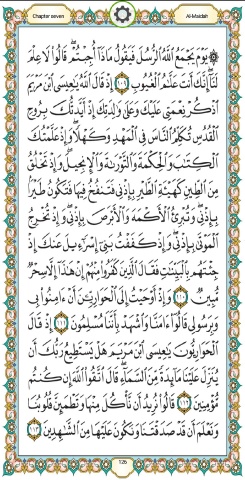 Chapter seven
Al-Maidah
۞ يَوْمَ يَجْمَعُ ٱللَّهُ ٱلرُّسُلَ فَيَقُولُ مَاذَآ أُجِبْتُمْ ۖ قَالُوا۟ لَا عِلْمَ
لَنَآ ۖ إِنَّكَ أَنتَ عَلَّٰمُ ٱلْغُيُوبِ ١٠٩ إِذْ قَالَ ٱللَّهُ يَٰعِيسَى ٱبْنَ مَرْيَمَ
ٱذْكُرْ نِعْمَتِى عَلَيْكَ وَعَلَىٰ وَٰلِدَتِكَ إِذْ أَيَّدتُّكَ بِرُوحِ
ٱلْقُدُسِ تُكَلِّمُ ٱلنَّاسَ فِى ٱلْمَهْدِ وَكَهْلًا ۖ وَإِذْ عَلَّمْتُكَ
ٱلْكِتَٰبَ وَٱلْحِكْمَةَ وَٱلتَّوْرَىٰةَ وَٱلْإِنجِيلَ ۖ وَإِذْ تَخْلُقُ
مِنَ ٱلطِّينِ كَهَيْـَٔةِ ٱلطَّيْرِ بِإِذْنِى فَتَنفُخُ فِيهَا فَتَكُونُ طَيْرًۢا
بِإِذْنِى ۖ وَتُبْرِئُ ٱلْأَكْمَهَ وَٱلْأَبْرَصَ بِإِذْنِى ۖ وَإِذْ تُخْرِجُ
ٱلْمَوْتَىٰ بِإِذْنِى ۖ وَإِذْ كَفَفْتُ بَنِىٓ إِسْرَٰٓءِيلَ عَنكَ إِذْ
جِئْتَهُم بِٱلْبَيِّنَٰتِ فَقَالَ ٱلَّذِينَ كَفَرُوا۟ مِنْهُمْ إِنْ هَٰذَآ إِلَّا سِحْرٌ
مُّبِينٌ ١١٠ وَإِذْ أَوْحَيْتُ إِلَى ٱلْحَوَارِيِّـۧنَ أَنْ ءَامِنُوا۟ بِى
وَبِرَسُولِى قَالُوٓا۟ ءَامَنَّا وَٱشْهَدْ بِأَنَّنَا مُسْلِمُونَ ١١١ إِذْ قَالَ
ٱلْحَوَارِيُّونَ يَٰعِيسَى ٱبْنَ مَرْيَمَ هَلْ يَسْتَطِيعُ رَبُّكَ أَن
يُنَزِّلَ عَلَيْنَا مَآئِدَةً مِّنَ ٱلسَّمَآءِ ۖ قَالَ ٱتَّقُوا۟ ٱللَّهَ إِن كُنتُم
مُّؤْمِنِينَ ١١٢ قَالُوا۟ نُرِيدُ أَن نَّأْكُلَ مِنْهَا وَتَطْمَئِنَّ قُلُوبُنَا
وَنَعْلَمَ أَن قَدْ صَدَقْتَنَا وَنَكُونَ عَلَيْهَا مِنَ ٱلشَّٰهِدِينَ ١١٣
126